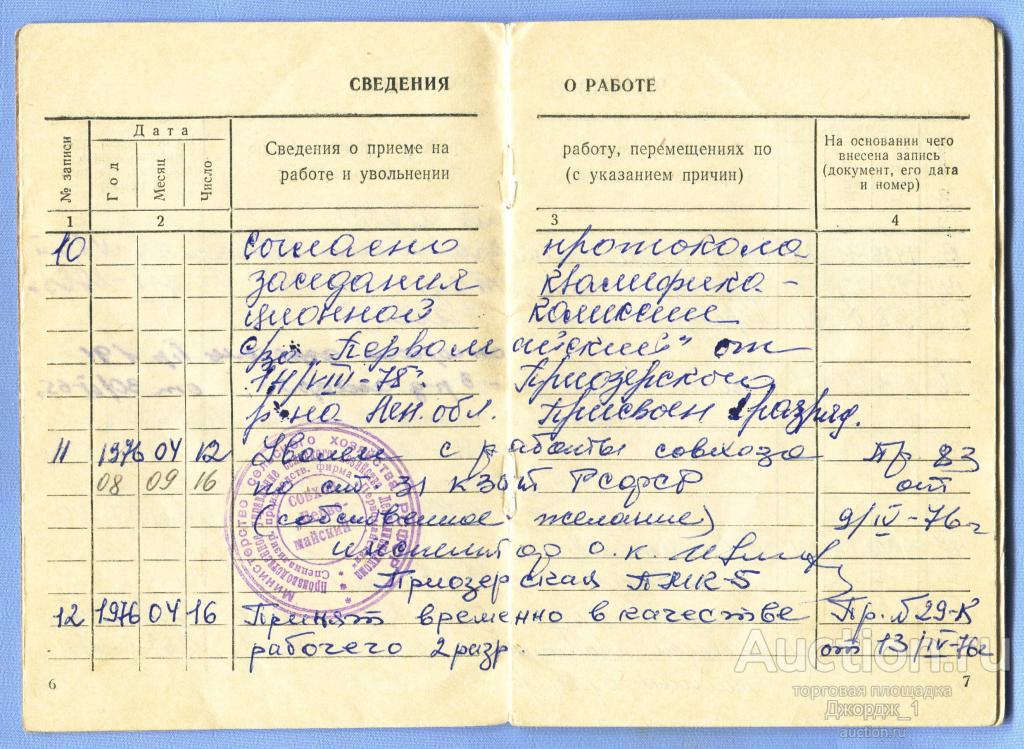 СВЕДЕНИЯ О РАБОТЕ
№ записи
Дата
Год
Месяц
Число
Сведения о приеме на работу, перемещениях по
работе и увольнении (с указанием причин)
На основании чего
внесена запись
(документ, его дата
и номер)
1 2 3 4
10 Согласно протокола
заседания квалифика-
ционной комиссии
с/за "Первомайский" от
Приозерского
р-на Лен. обл. Присвоен разряд.
11 1976 04 12 Уволен с работы совхоза Пр. 83
08 09 16 по ст. 31 КЗоТ РСФСР от
(собственное желание) 9/IV-76г
инспектор о.к.
Приозерская ПМК-5
12 1976 04 16 Принят временно в качестве Пр. №29-К
рабочего 2 разр. от 13/IV-76г
Министерство сельского хозяйства РСФСР
совхоз
"Перво-
майский"
6
7
Auction.ru
торговая площадка
Джордж_1
auction.ru